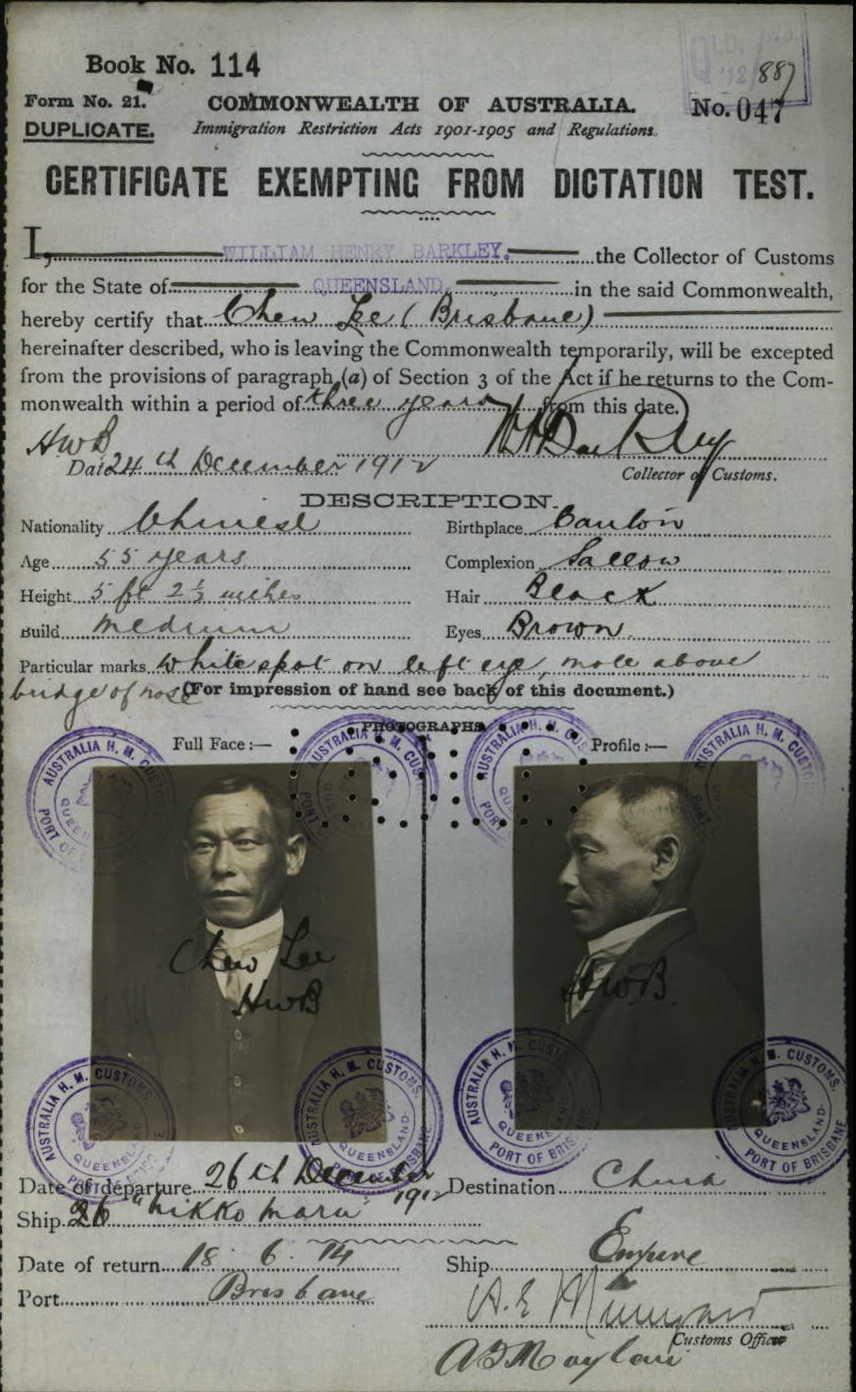 Book No. 114
887
Form No. 21.
COMMONWEALTH OF AUSTRALIA.
No. 047
DUPLICATE.
Immigration Restriction Acts 1901-1905 and Regulations.
CERTIFICATE EXEMPTING FROM DICTATION TEST.
I, WILLIAM HENRY BARKLEY, the Collector of Customs
for the State of QUEENSLAND, in the said Commonwealth,
hereby certify that Chew Lee (Brisbane)
hereinafter described, who is leaving the Commonwealth temporarily, will be excepted
from the provisions of paragraph (a) of Section 3 of the Act if he returns to the Com-
monwealth within a period of three years from this date.
HWB
Date 24th December 1912
Collector of Customs.
DESCRIPTION.
Nationality Chinese
Birthplace Canton
Age 55 years
Complexion Sallow
Height 5 ft 2½ inches
Hair Black
Build Medium
Eyes Brown
Particular marks White spot on left eye, mole above
bridge of nose (For impression of hand see back of this document.)
PHOTOGRAPHS
Full Face :—
Profile :—
AUSTRALIA H. M. CUSTOMS
QUEENSLAND
PORT OF BRISBANE
Chew Lee
HWB
HWB
Date of departure 26th December 1912
Destination China
Ship "Nikko Maru"
Date of return 18. 6. 14
Ship Empire
Port Brisbane
Customs Officer